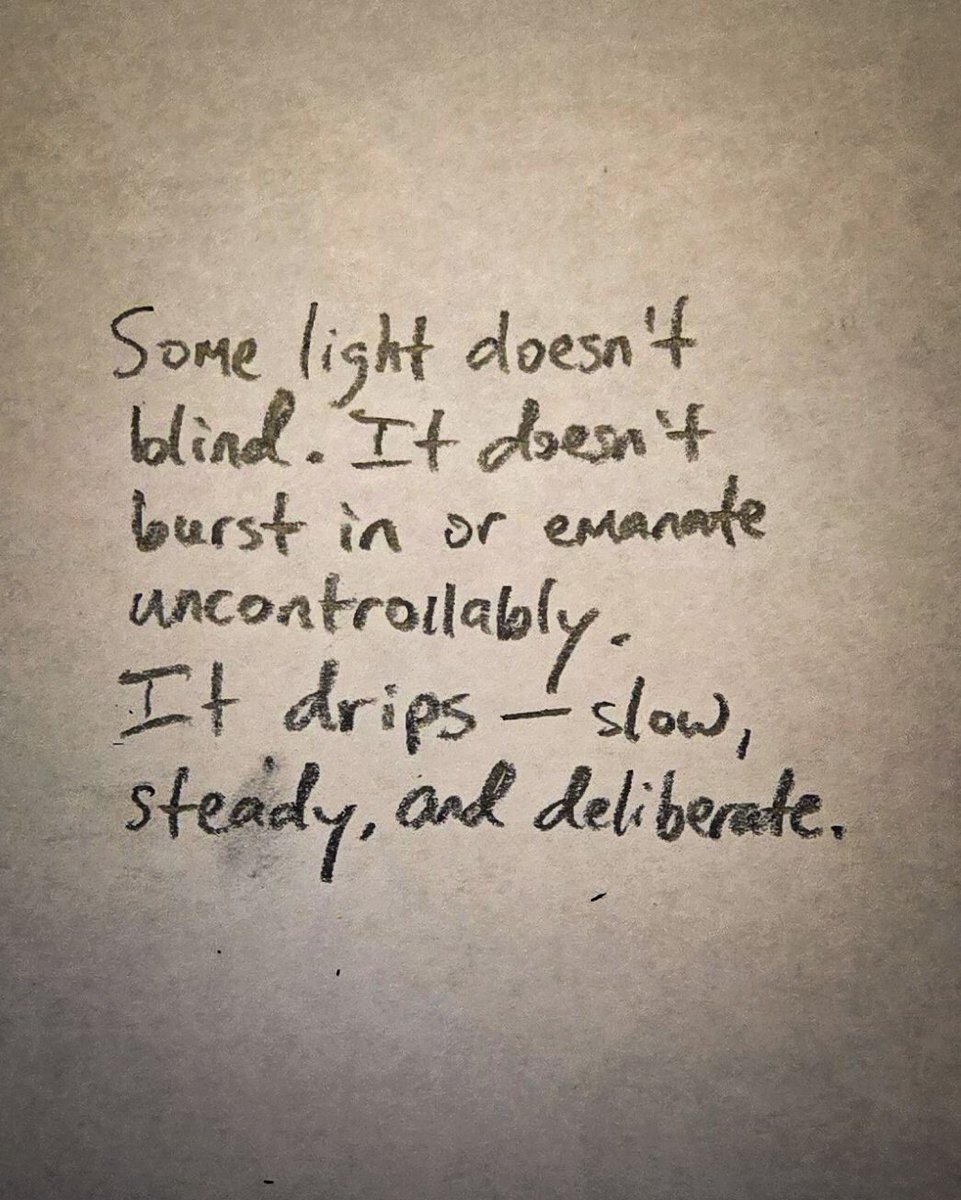 Some light doesn't
blind. It doesn't
burst in or emanate
uncontrollably.
It drips — slow,
steady, and deliberate.